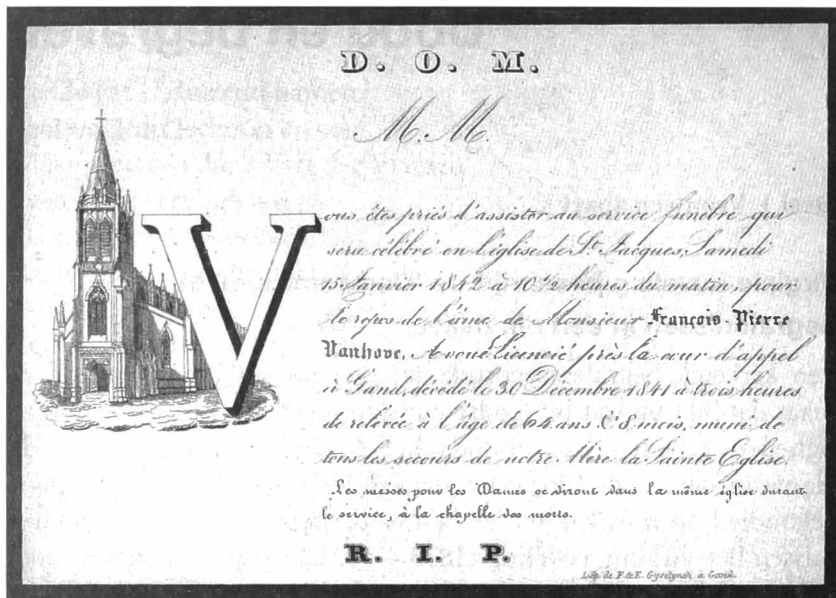 D. O. M.
M. M.
Vous êtes priés d'assister au service funèbre qui
sera célébré en l'église de St. Jacques, Samedi
15 Janvier 1842 à 10 1/2 heures du matin, pour
le repos de l'âme de Monsieur François-Pierre
Vanhove, Avoué Licencié près la cour d'appel
à Gand, décédé le 30 Décembre 1841 à trois heures
de relevée à l'âge de 64 ans & 8 mois, muni de
tous les secours de notre Mère la Sainte Eglise.
Les messes pour les Dames se diront dans la même église durant
le service, à la chapelle des morts.
R. I. P.
Lith. de F. & E. Gyselynck à Gand.